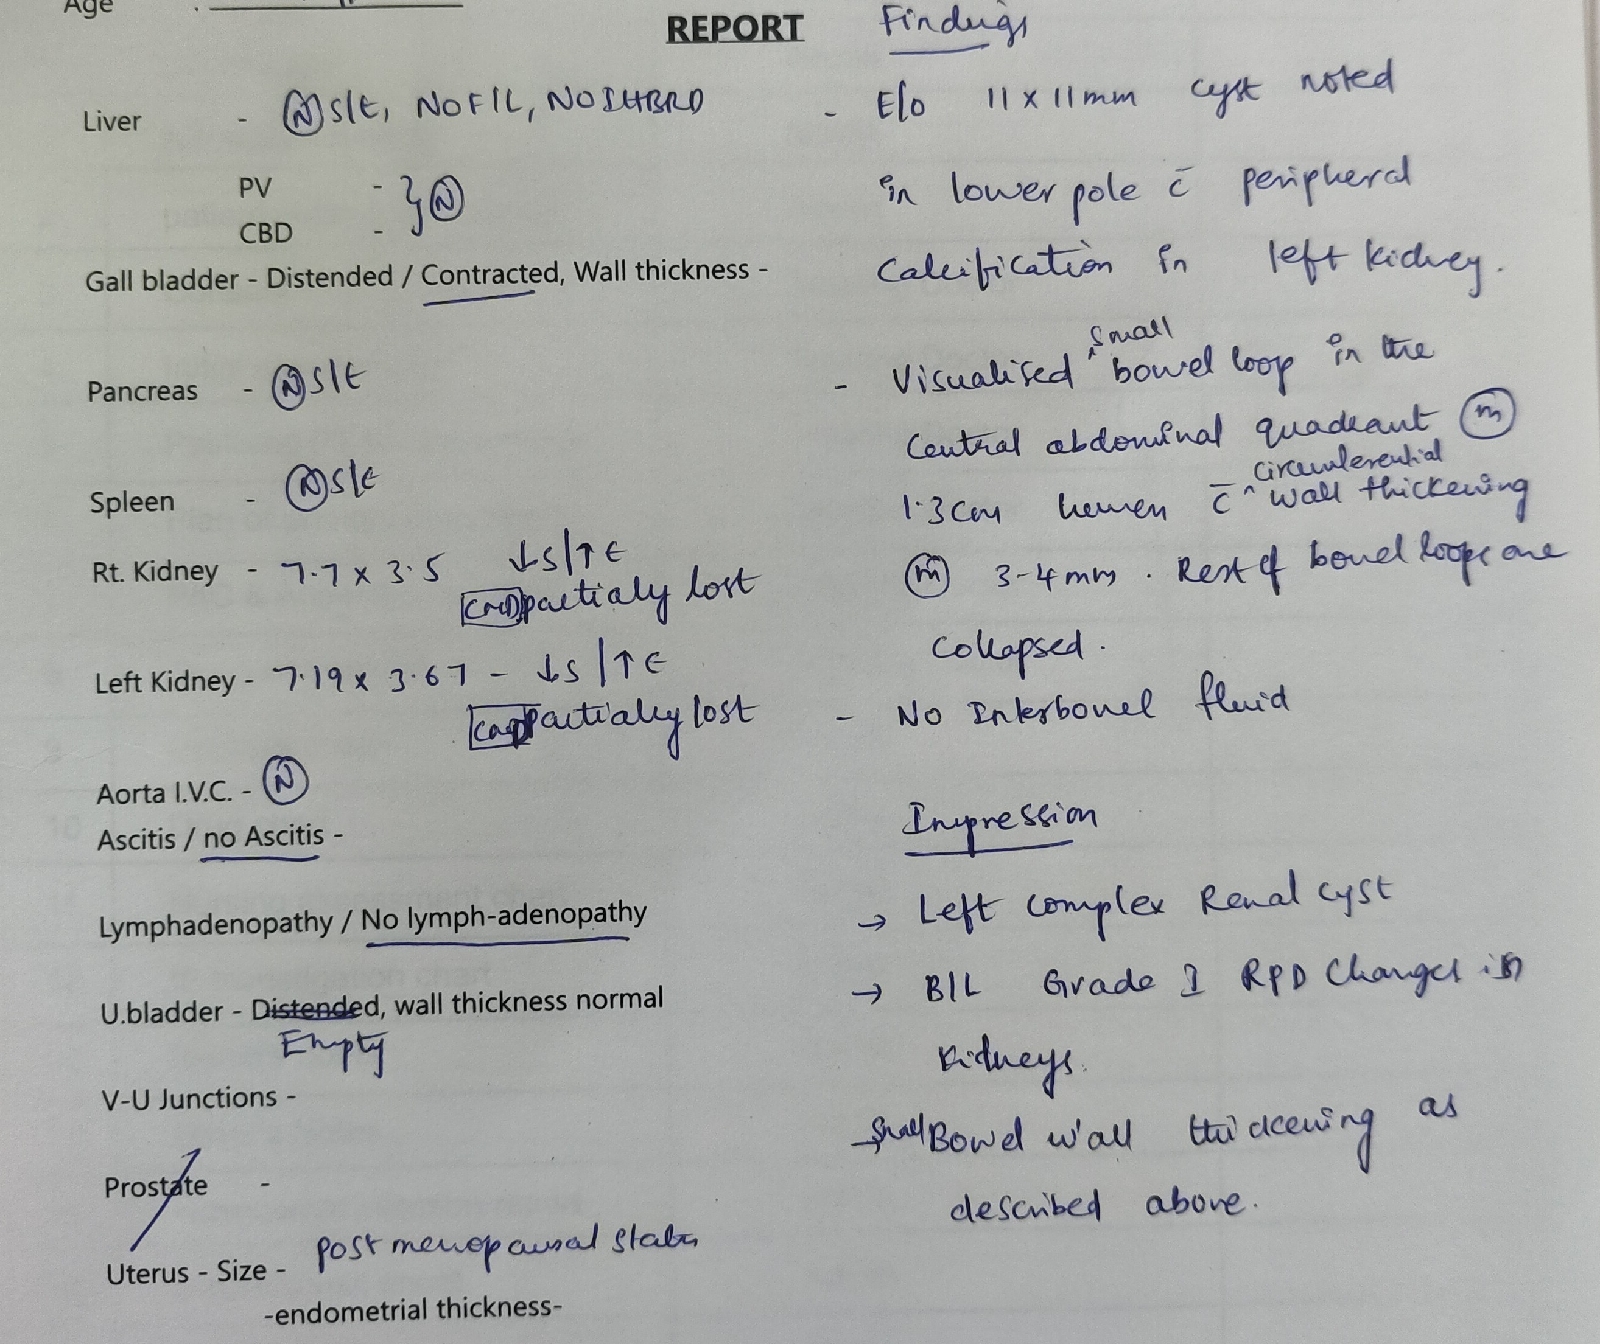 Age
REPORT
Liver - Ⓝ S/E, NO F/L, NO IHBRD
PV -
CBD - } Ⓝ
Gall bladder - Distended / Contracted, Wall thickness -
Pancreas - Ⓝ S/E
Spleen - Ⓝ S/E
Rt. Kidney - 7.7 x 3.5 ↓S/↑E
CMD partialy lost
Left Kidney - 7.19 x 3.67 - ↓S/↑E
CMD partialy lost
Aorta I.V.C. - Ⓝ
Ascitis / no Ascitis -
Lymphadenopathy / No lymph-adenopathy
U.bladder - Distended, wall thickness normal
Empty
V-U Junctions -
Prostate -
Uterus - Size - post menopausal status
-endometrial thickness-
Findings
- E/o 11 x 11 mm cyst noted
in lower pole c̄ peripheral
Calcification in left kidney.
- Visualised ^small bowel loop in the
Central abdominal quadrant ⓜ
1.3 cm lumen c̄ ^circumferential wall thickening
ⓜ 3-4 mm. Rest of bowel loops are
collapsed.
- No Interbowel fluid
Impression
→ Left complex Renal cyst
→ B/L Grade I RPD Changes in
kidneys.
→ small Bowel wall thickening as
described above.